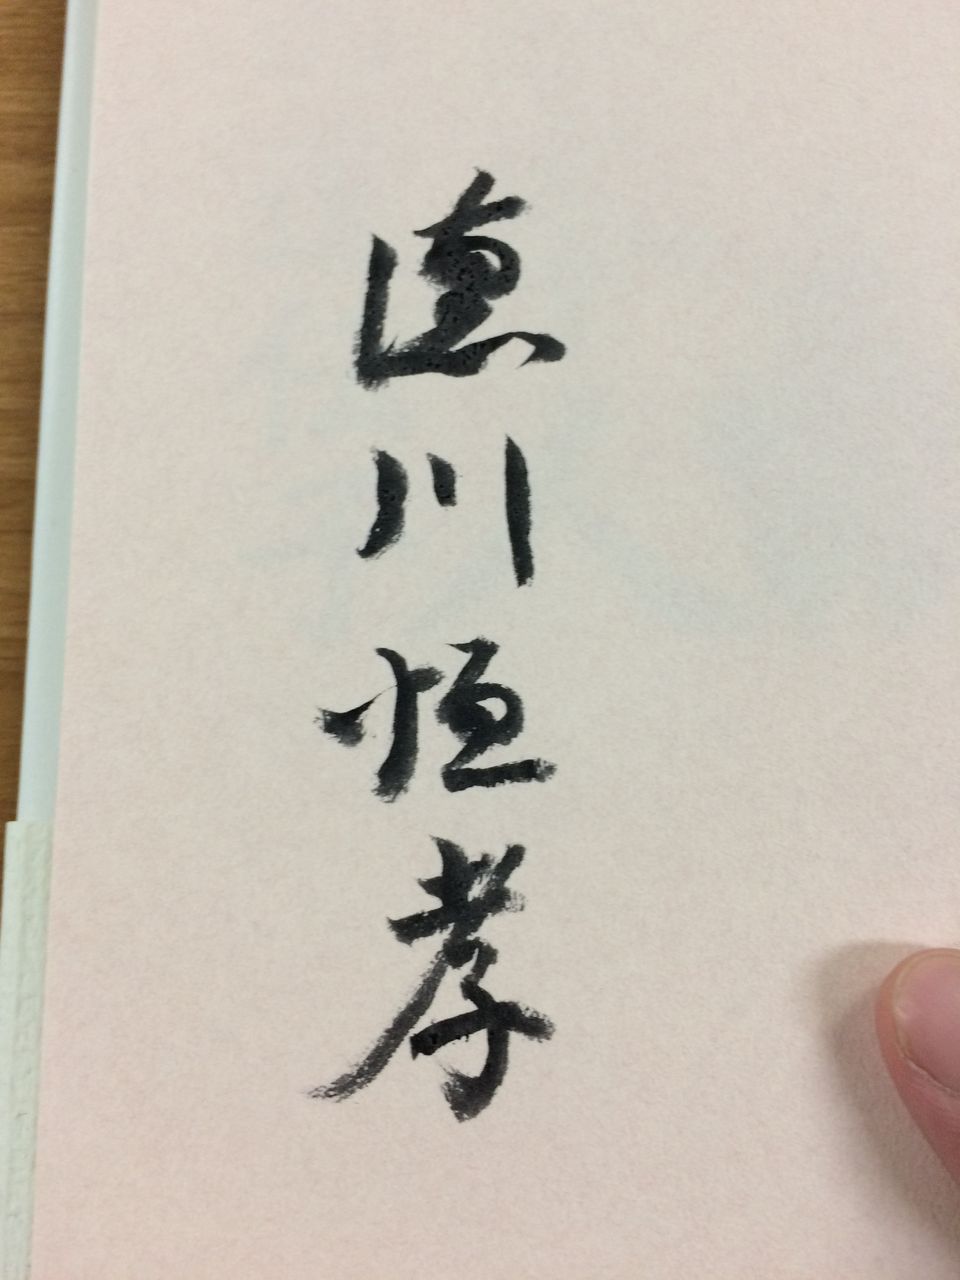 徳川恒孝